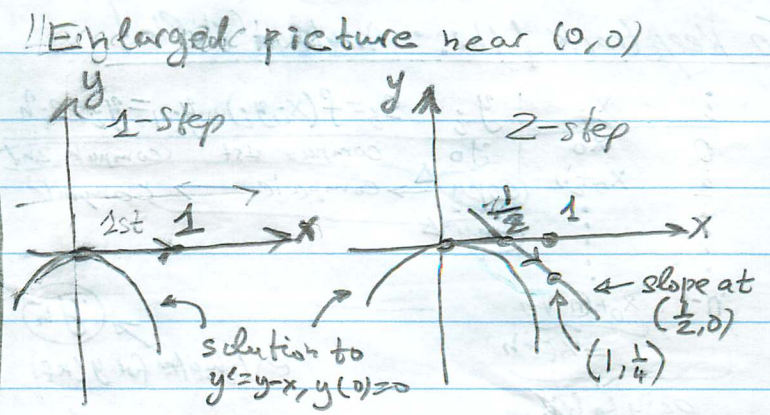 !! Enlarged picture near (0,0)
y 1-step
1st 1 x
y 2-step
1/2 1 x
← slope at
(1/2,0)
(1,1/4)
solution to
y'=y-x, y(0)=0